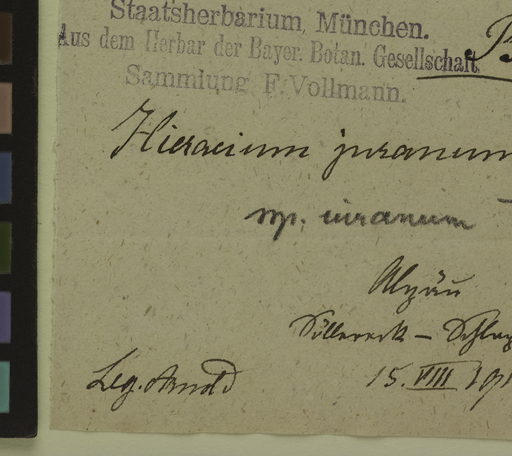 Staatsherbarium, München.
Aus dem Herbar der Bayer. Botan. Gesellschaft
Sammlung F. Vollmann.
Hieracium juranum
ssp. juranum
Algäu
Söllereck –
15. VIII 191
Leg. Arnold